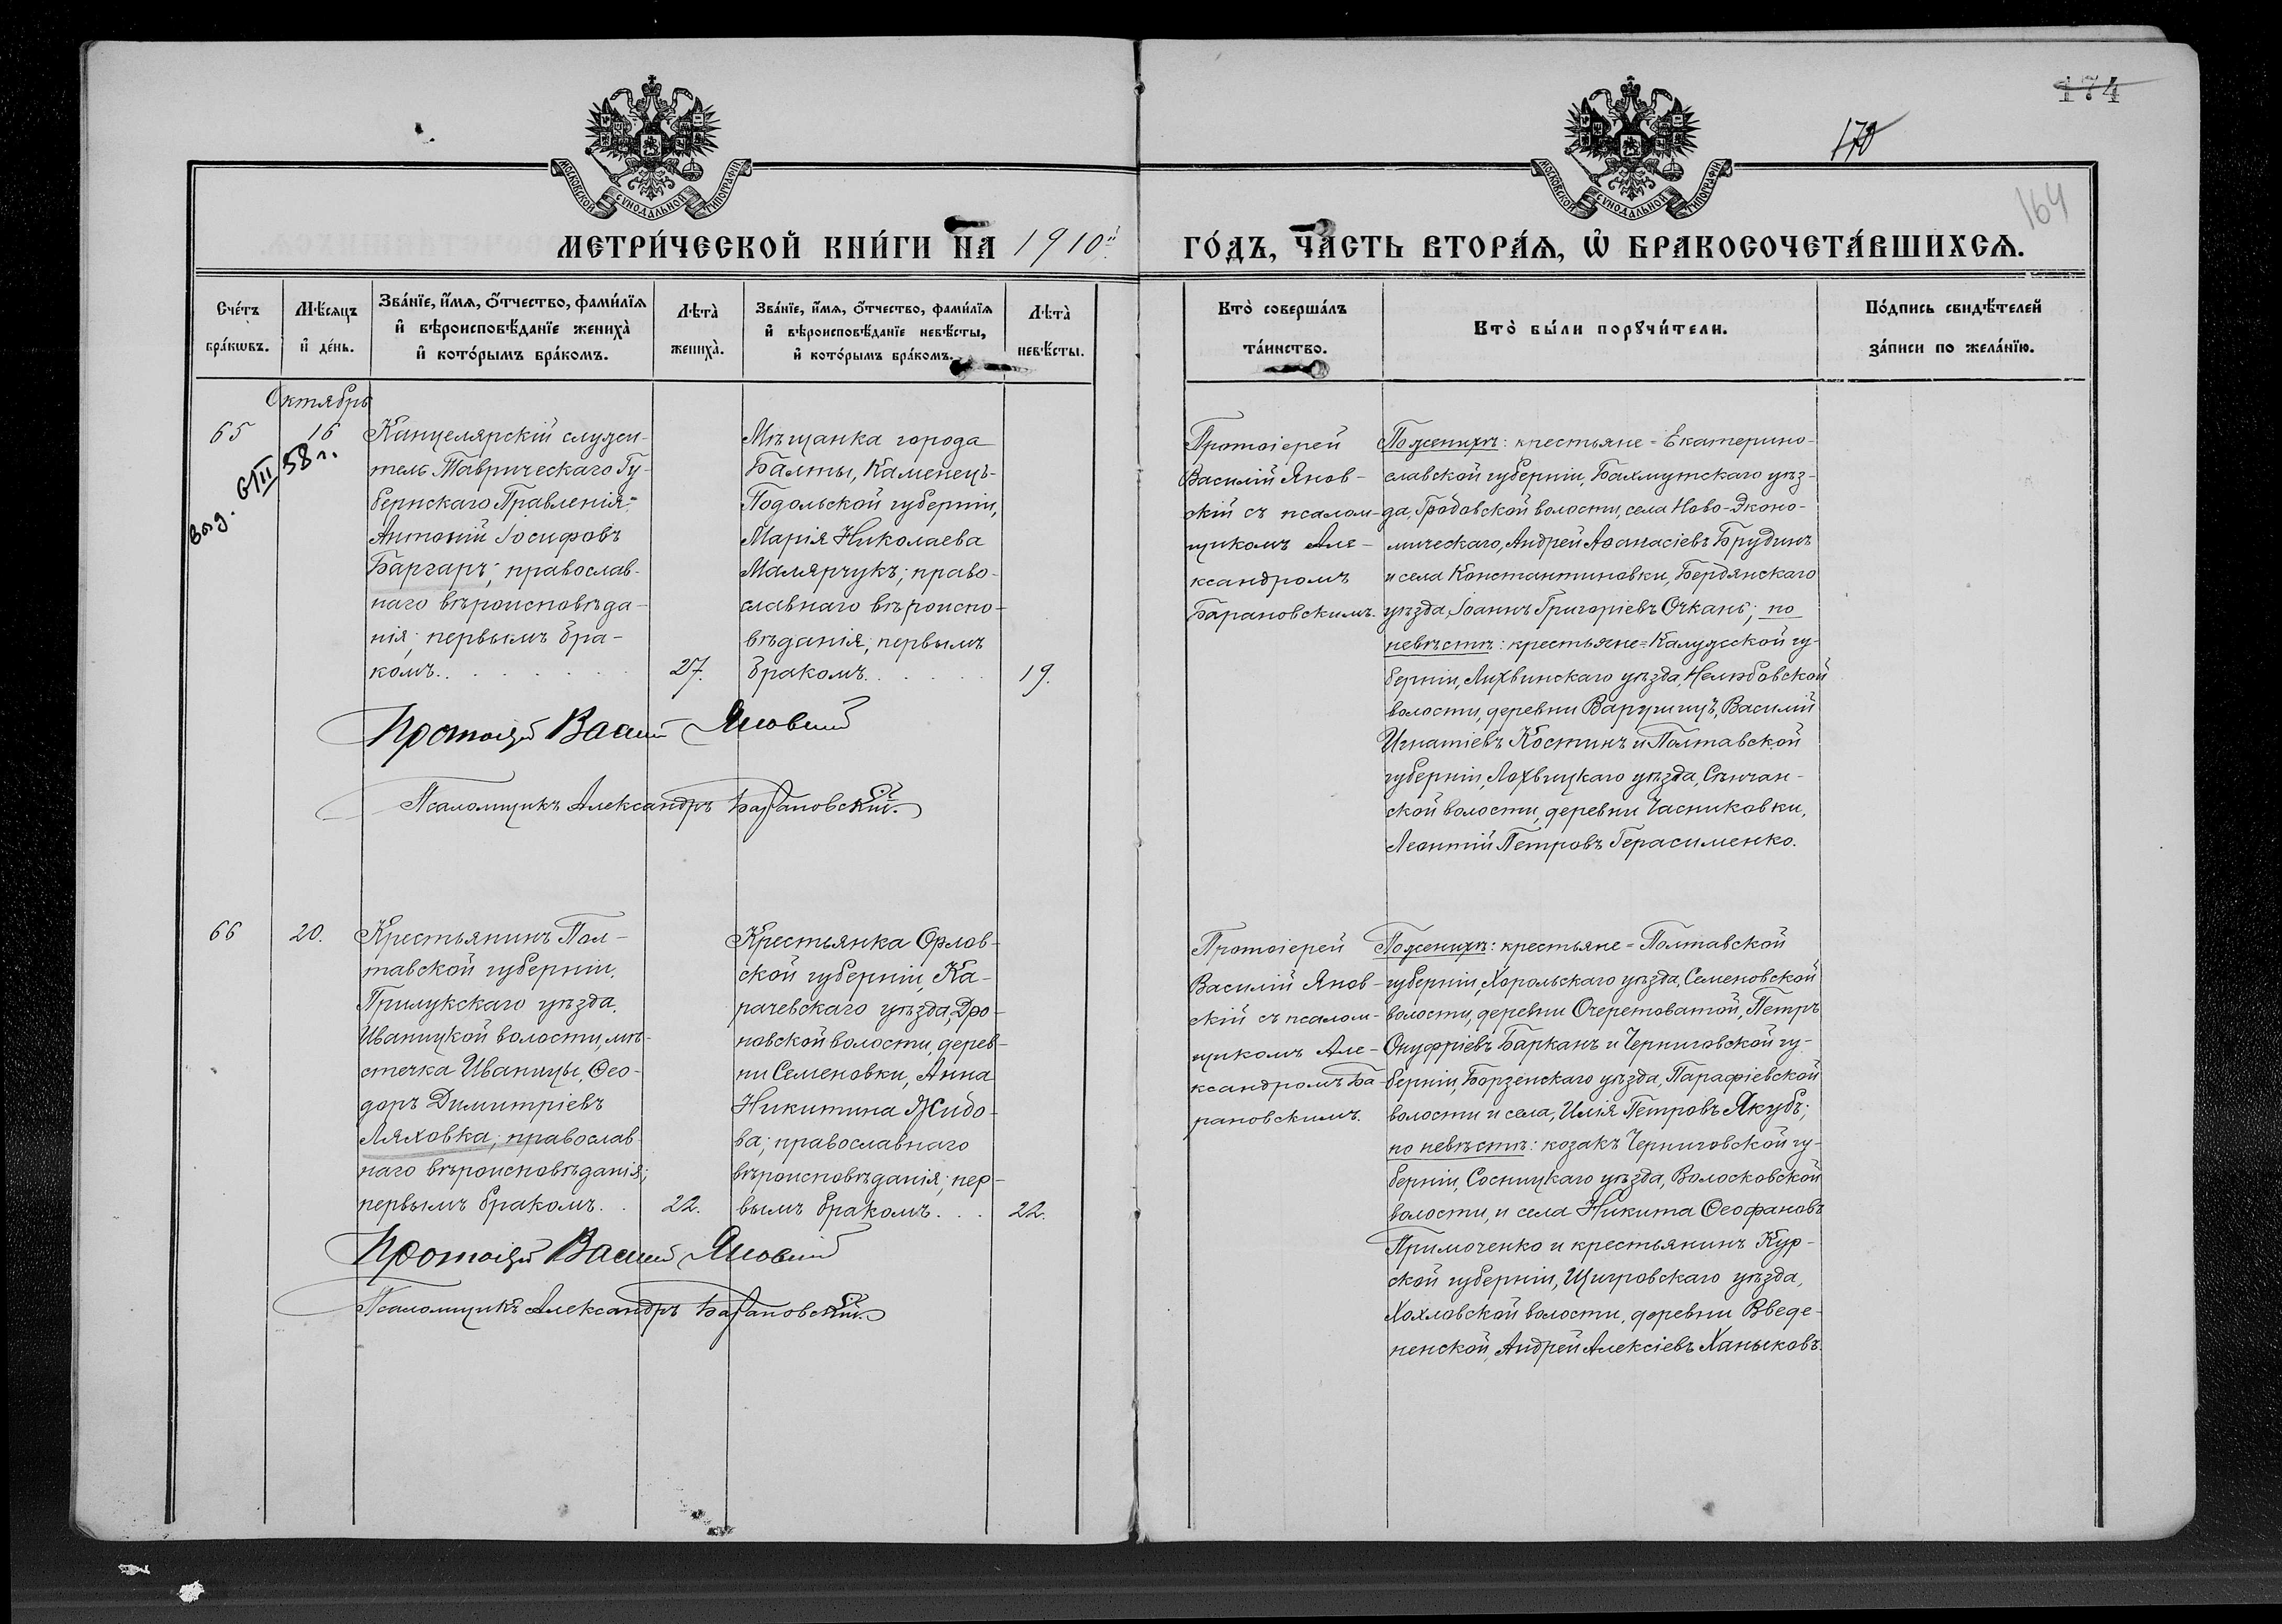 174
170
164
МОСКОВСКОЙ СѴНОДАЛЬНОЙ ТИПОГРАФІИ
МОСКОВСКОЙ СѴНОДАЛЬНОЙ ТИПОГРАФІИ
МЕТРИ́ЧЕСКОЙ КНИ́ГИ НА 1910й
ГО́ДЪ, ЧА́СТЬ ВТОРА́Ѧ, Ѽ БРАКОСОЧЕТА́ВШИХСѦ.
Сче́тъ
бра́кѡвъ.
Мѣ́сяцъ
и҆ де́нь.
Зва́нїе, и҆́мѧ, ѻ҆́тчество, фами́лїѧ
и҆ вѣроисповѣ́данїе жениха̀
и҆ кото́рымъ бра́комъ.
Лѣта̀
жениха̀.
Зва́нїе, и҆́мѧ, ѻ҆́тчество, фами́лїѧ
и҆ вѣроисповѣ́данїе невѣ́сты,
и҆ кото́рымъ бра́комъ.
Лѣта̀
невѣ́сты.
Кто̀ соверша́лъ
та́инство.
Кто̀ бы́ли порꙋчи́тели.
По́дпись свидѣ́телей
за́писи по жела́нїю.
Октябрь
65
16
выд. 6/II 58 г.
Канцелярскій служи-
тель Таврическаго Гу-
бернскаго Правленія=
Антоній Іосифовъ
Баргаръ; православ-
наго вѣроисповѣда-
нія; первымъ бра-
комъ. . . . . . . .
27.
Мѣщанка города
Балты, Каменецъ-
Подольской губерніи,
Марія Николаева
Малярчукъ; право-
славнаго вѣроиспо-
вѣданія; первымъ
бракомъ. . . . .
19.
Протоіерей Василій Яновскій
Псаломщикъ Александръ Барановскій.
Протоіерей
Василій Янов-
скій съ псалом-
щикомъ Але-
ксандромъ
Барановскимъ.
По женихѣ: крестьяне= Екатерино-
славской губерніи, Бахмутскаго уѣз-
да, Гродовской волости, села Ново-Эконо-
мическаго, Андрей Аѳанасіевъ Брудинъ
и села Константиновки, Бердянскаго
уѣзда, Іоаннъ Григоріевъ Очкань; по
невѣстѣ: крестьяне= Калужской гу-
берніи, Лихвинскаго уѣзда, Нелюбовской
волости, деревни Варушицъ, Василій
Игнатіевъ Костинъ и Полтавской
губерніи, Лохвицкаго уѣзда, Сѣнчан-
ской волости, деревни Часниковки,
Леонтій Петровъ Герасименко.
66
20.
Крестьянинъ Пол-
тавской губерніи,
Прилукскаго уѣзда,
Иваницкой волости, мѣ-
стечка Иваницы, Ѳео-
доръ Димитріевъ
Ляховка; православ-
наго вѣроисповѣданія;
первымъ бракомъ. .
22.
Крестьянка Орлов-
ской губерніи, Ка-
рачевскаго уѣзда, Дро-
новской волости, дерев-
ни Семеновки, Анна
Никитина Жидо-
ва; православнаго
вѣроисповѣданія; пер-
вымъ бракомъ. . .
22.
Протоіерей Василій Яновскій
Псаломщикъ Александръ Барановскій.
Протоіерей
Василій Янов-
скій съ псалом-
щикомъ Але-
ксандромъ Ба-
рановскимъ.
По женихѣ: крестьяне= Полтавской
губерніи, Хорольскаго уѣзда, Семеновской
волости, деревни Очеретоватой, Петръ
Онуфріевъ Барканъ и Черниговской гу-
берніи, Борзенскаго уѣзда, Парафіевской
волости и села, Илія Петровъ Якубъ;
по невѣстѣ: козакъ Черниговской гу-
берніи, Сосницкаго уѣзда, Волосковской
волости, и села Никита Ѳеофановъ
Примоченко и крестьянинъ Кур-
ской губерніи, Щигровскаго уѣзда,
Хохловской волости, деревни Введе-
ненской, Андрей Алексіевъ Ханыковъ.